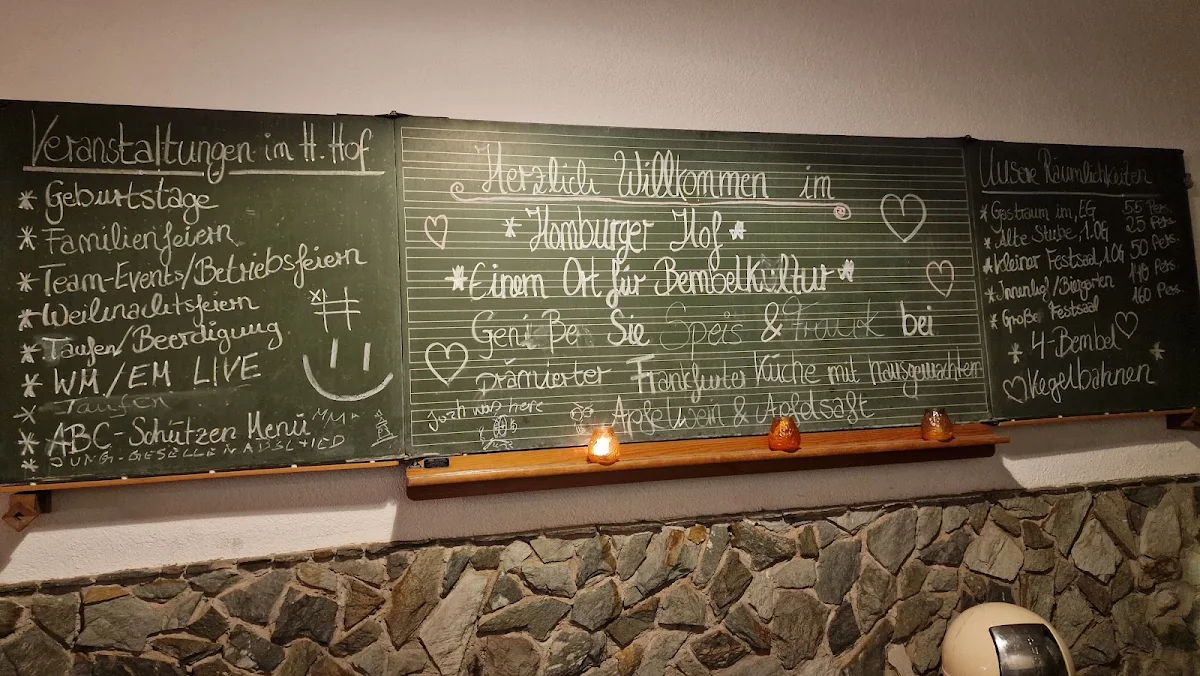 Veranstaltungen im H. Hof
* Geburtstage
* Familienfeiern
* Team-Events/Betriebsfeiern
* Weihnachtsfeiern
* Taufen/Beerdigung
* WM/EM LIVE
* Taufen
* ABC-Schützen Menü
* JUNG-GESELLENABSCHIED
Herzlich Willkommen im
* Homburger Hof *
* Einem Ort für Bembelkultur *
Genießen Sie Speis & Trunk bei
prämierter Frankfurter Küche mit hausgemachtem
Apfelwein & Apfelsaft
Josh was here
Unsere Räumlichkeiten
* Gastraum im EG 55 Pers.
* Alte Stube, 1.OG 25 Pers.
* Kleiner Festsaal, 1.OG 50 Pers.
* Innenhof/Biergarten 140 Pers.
* Große Festsaal 160 Pers.
* 4-Bembel *
Kegelbahnen